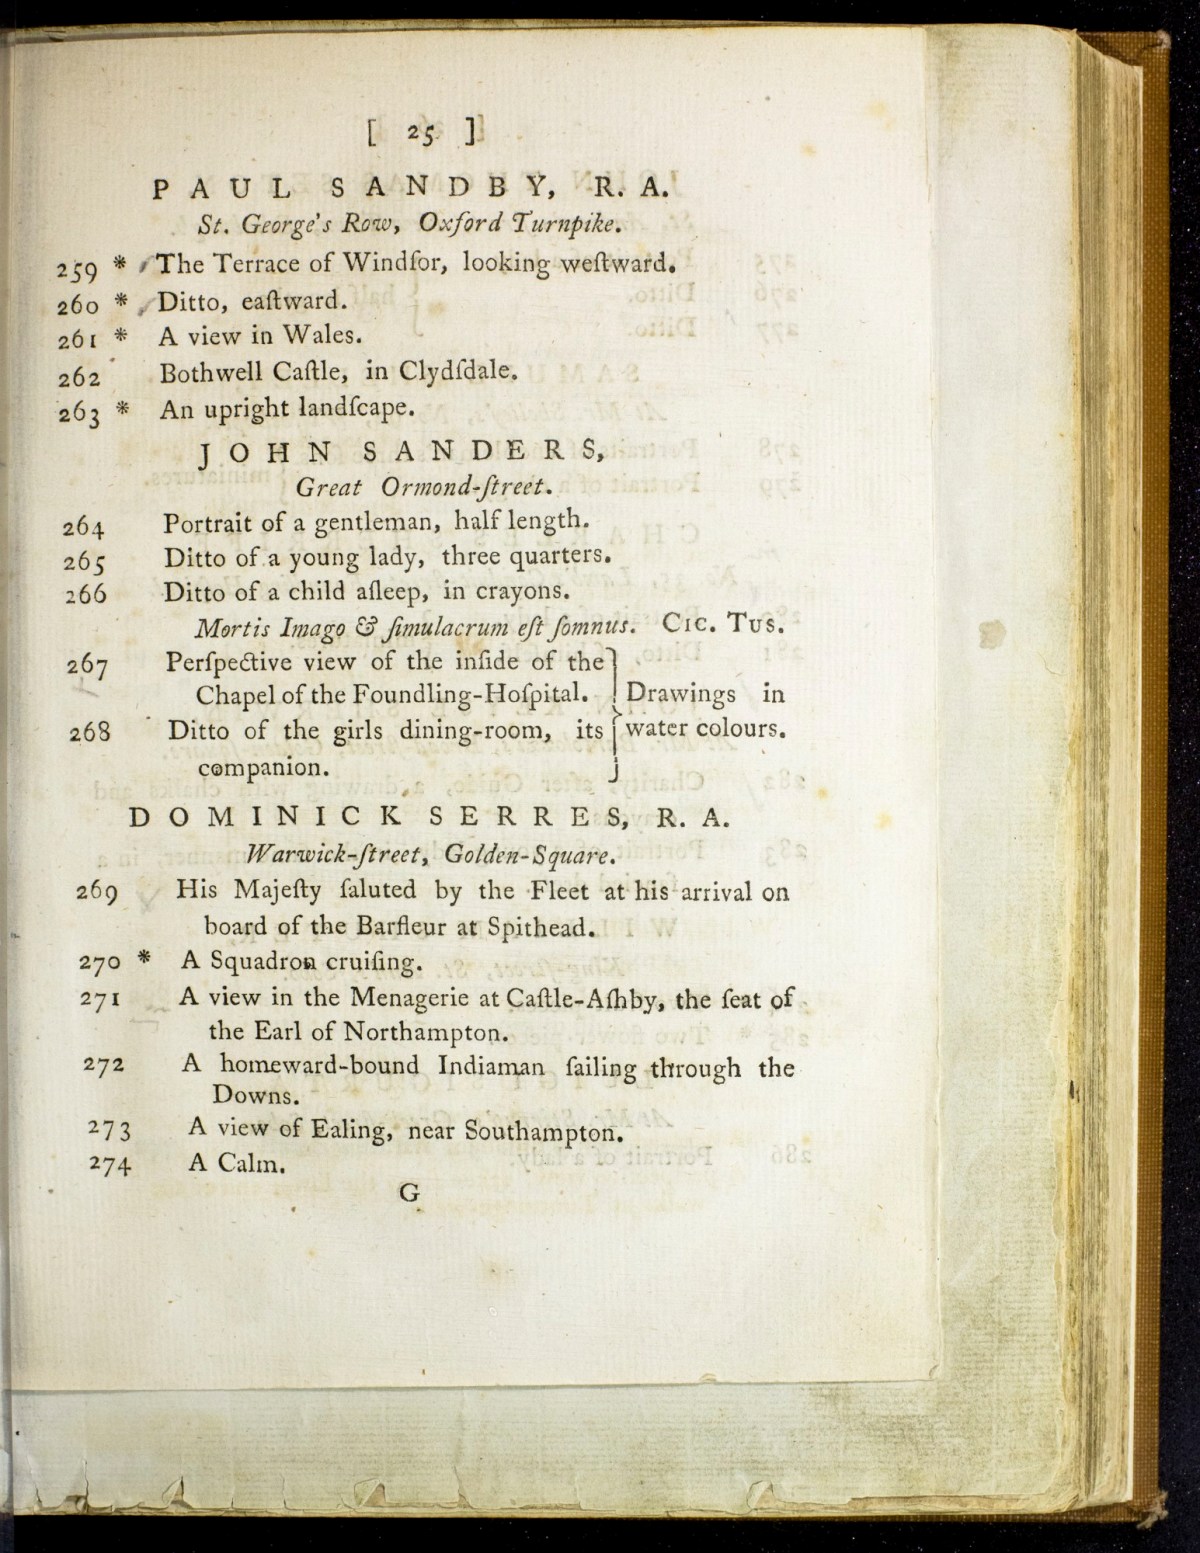 [ 25 ]
PAUL SANDBY, R. A.
St. George's Row, Oxford Turnpike.
259 * The Terrace of Windſor, looking weſtward.
260 * Ditto, eaſtward.
261 * A view in Wales.
262 Bothwell Caſtle, in Clydſdale.
263 * An upright landſcape.
JOHN SANDERS,
Great Ormond-ſtreet.
264 Portrait of a gentleman, half length.
265 Ditto of a young lady, three quarters.
266 Ditto of a child aſleep, in crayons.
Mortis Imago & ſimulacrum eſt ſomnus. CIC. TUS.
267 Perſpective view of the inſide of the
Chapel of the Foundling-Hoſpital. } Drawings in
268 Ditto of the girls dining-room, its } water colours.
companion.
DOMINICK SERRES, R. A.
Warwick-ſtreet, Golden-Square.
269 His Majeſty ſaluted by the Fleet at his arrival on
board of the Barfleur at Spithead.
270 * A Squadron cruiſing.
271 A view in the Menagerie at Caſtle-Aſhby, the ſeat of
the Earl of Northampton.
272 A homeward-bound Indiaman ſailing through the
Downs.
273 A view of Ealing, near Southampton.
274 A Calm.
G